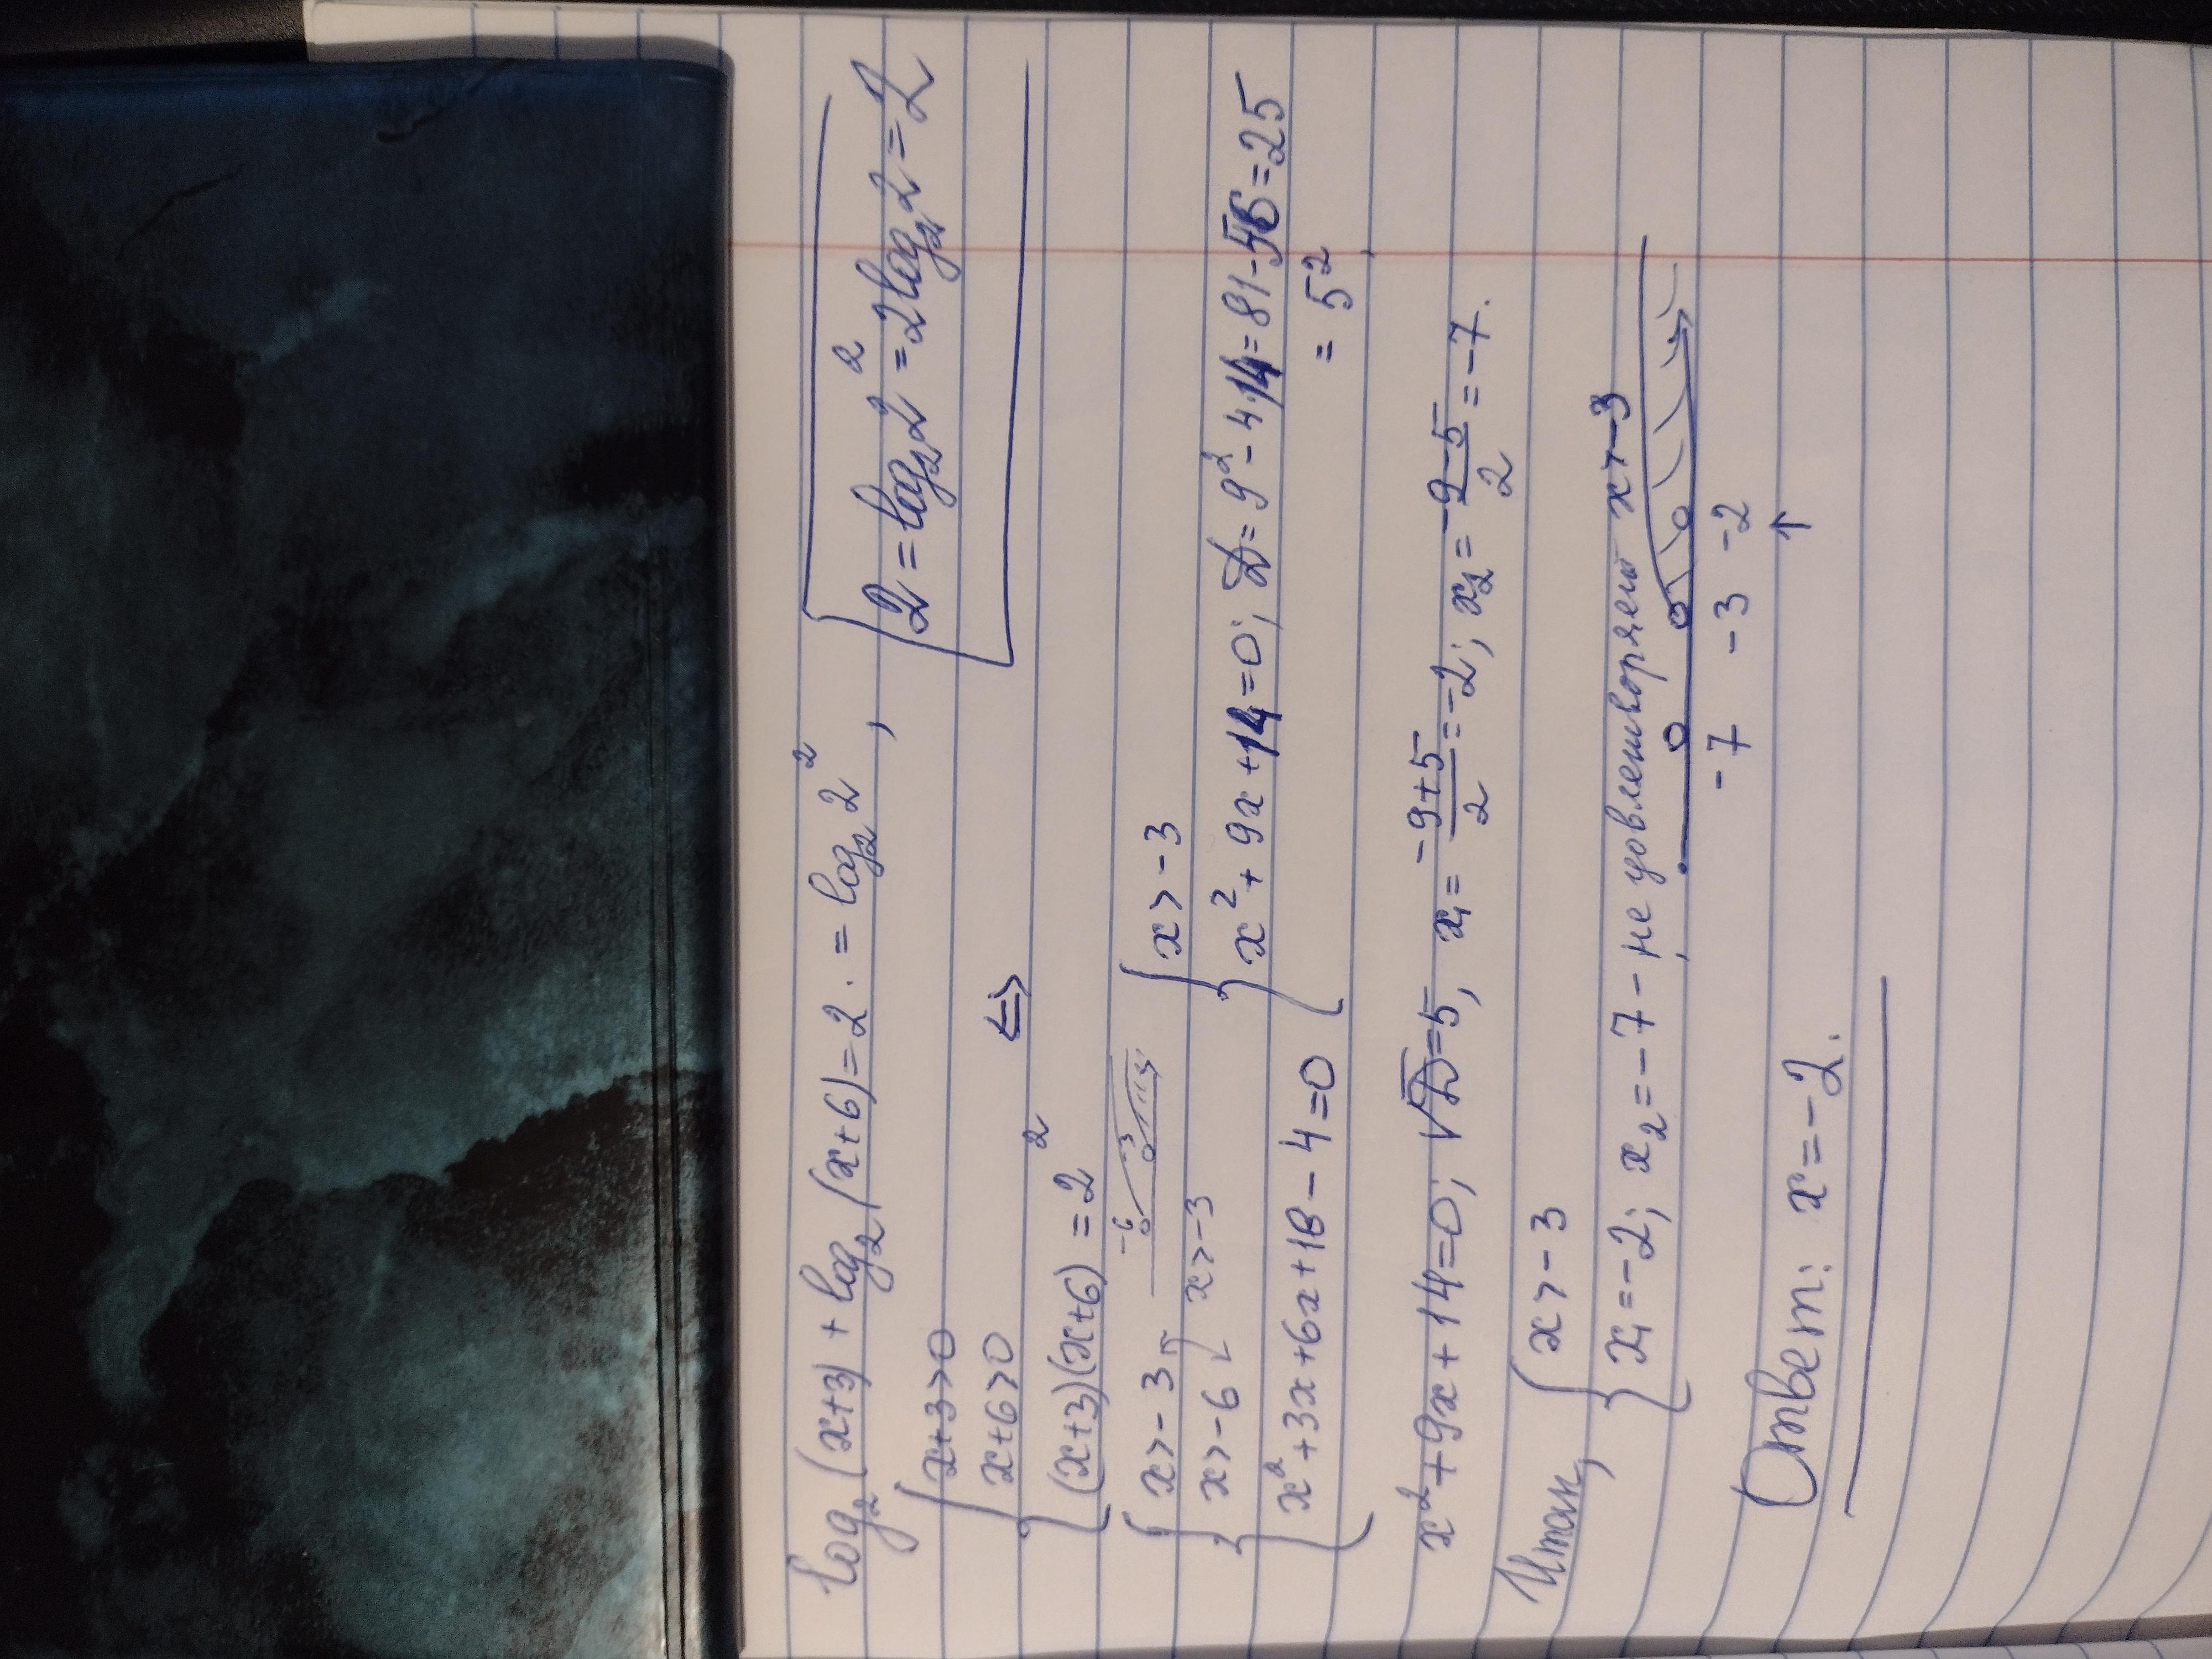 log₂(x+3) + log₂(x+6) = 2 · = log₂2², [2 = log₂2² = 2log₂2 = 2]
{x+3>0
x+6>0 ⇔
(x+3)(x+6) = 2²
-6 -3
{x>-3
x>-6 x>-3 {x>-3
x²+3x+6x+18-4=0 x²+9x+14=0; D=9²-4·14=81-56=25
= 5²,
x²+9x+14=0; √D=5, x₁= (-9+5)/2 =-2; x₂= (-9-5)/2 =-7.
Итак, {x>-3
x₁=-2; x₂=-7 - не удовлетворяет x>-3
-7 -3 -2
↑
Ответ: x=-2.